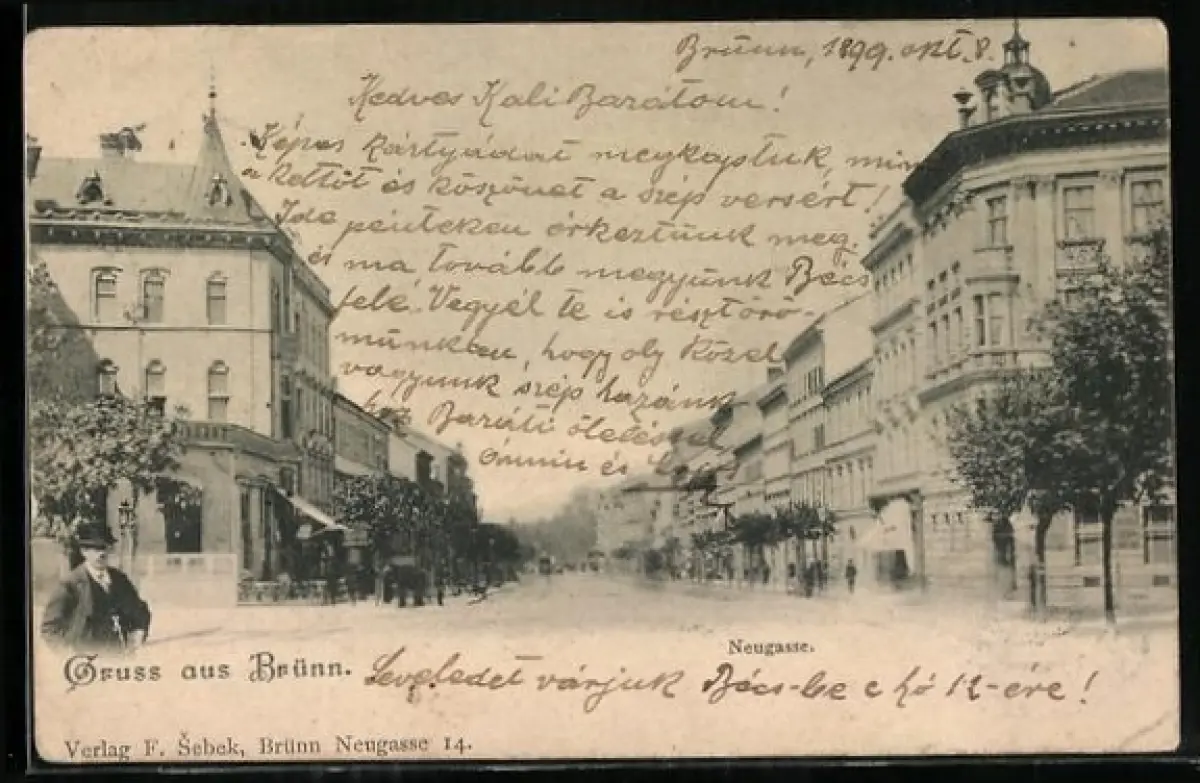 Brünn, 1899. okt. 8.
Kedves Kali Barátom!
Képes kártyádat megkaptuk, mind
a kettőt és köszönet a szép versért!
Ide pénteken érkeztünk meg.
és ma tovább megyünk Bécs
felé. Vegyél te is részt örö-
münkben, hogy oly közel
vagyunk szép hazánk
hoz Baráti öleléssel
Ármin és
Neugasse.
Gruss aus Brünn. Leveledet várjuk Bécs-be e hó 12-ére!
Verlag F. Šebek, Brünn Neugasse 14.